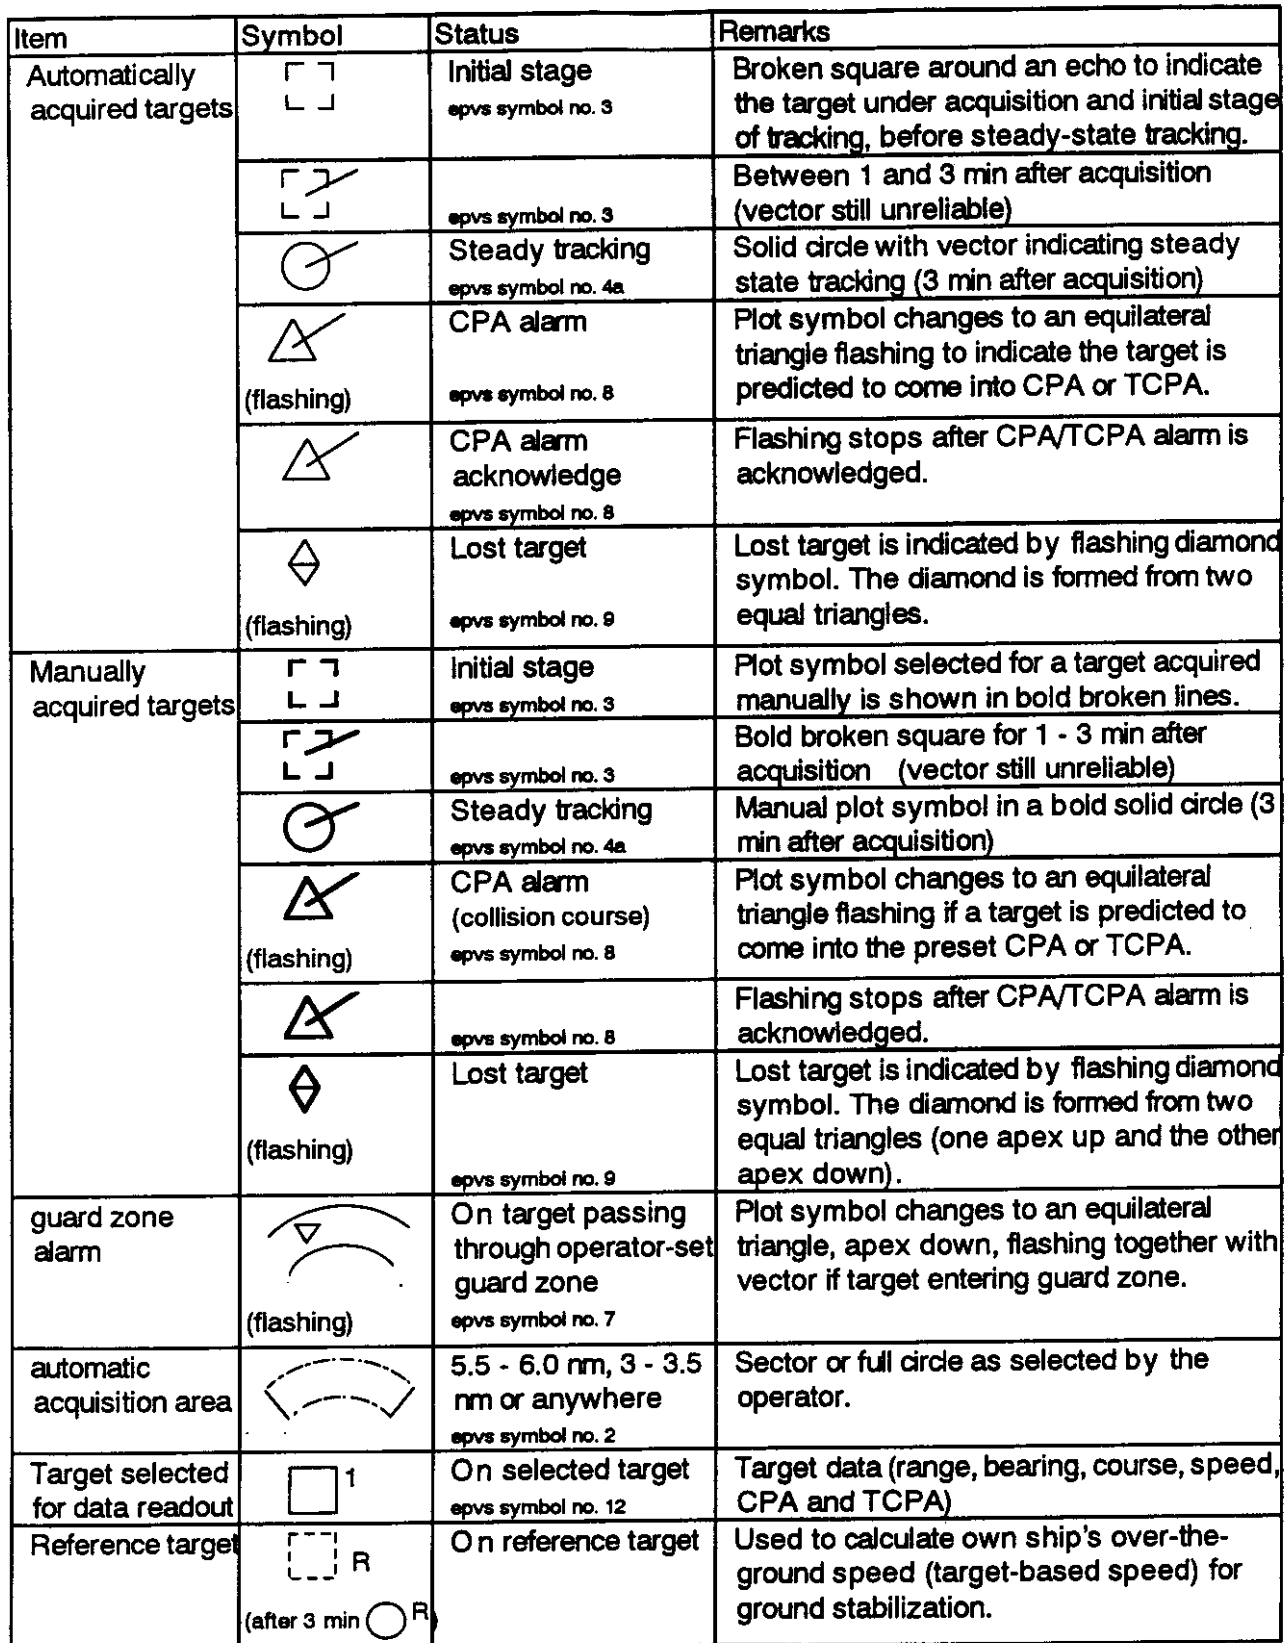 Item Symbol Status Remarks
Automatically
acquired targets
Initial stage
epvs symbol no. 3
Broken square around an echo to indicate
the target under acquisition and initial stage
of tracking, before steady-state tracking.
epvs symbol no. 3
Between 1 and 3 min after acquisition
(vector still unreliable)
Steady tracking
epvs symbol no. 4a
Solid circle with vector indicating steady
state tracking (3 min after acquisition)
(flashing)
CPA alarm
epvs symbol no. 8
Plot symbol changes to an equilateral
triangle flashing to indicate the target is
predicted to come into CPA or TCPA.
CPA alarm
acknowledge
epvs symbol no. 8
Flashing stops after CPA/TCPA alarm is
acknowledged.
(flashing)
Lost target
epvs symbol no. 9
Lost target is indicated by flashing diamond
symbol. The diamond is formed from two
equal triangles.
Manually
acquired targets
Initial stage
epvs symbol no. 3
Plot symbol selected for a target acquired
manually is shown in bold broken lines.
epvs symbol no. 3
Bold broken square for 1 - 3 min after
acquisition (vector still unreliable)
Steady tracking
epvs symbol no. 4a
Manual plot symbol in a bold solid circle (3
min after acquisition)
(flashing)
CPA alarm
(collision course)
epvs symbol no. 8
Plot symbol changes to an equilateral
triangle flashing if a target is predicted to
come into the preset CPA or TCPA.
epvs symbol no. 8
Flashing stops after CPA/TCPA alarm is
acknowledged.
(flashing)
Lost target
epvs symbol no. 9
Lost target is indicated by flashing diamond
symbol. The diamond is formed from two
equal triangles (one apex up and the other
apex down).
guard zone
alarm
(flashing)
On target passing
through operator-set
guard zone
epvs symbol no. 7
Plot symbol changes to an equilateral
triangle, apex down, flashing together with
vector if target entering guard zone.
automatic
acquisition area
5.5 - 6.0 nm, 3 - 3.5
nm or anywhere
epvs symbol no. 2
Sector or full circle as selected by the
operator.
Target selected
for data readout
1
On selected target
epvs symbol no. 12
Target data (range, bearing, course, speed,
CPA and TCPA)
Reference target
R
(after 3 min R)
On reference target
Used to calculate own ship's over-the-
ground speed (target-based speed) for
ground stabilization.